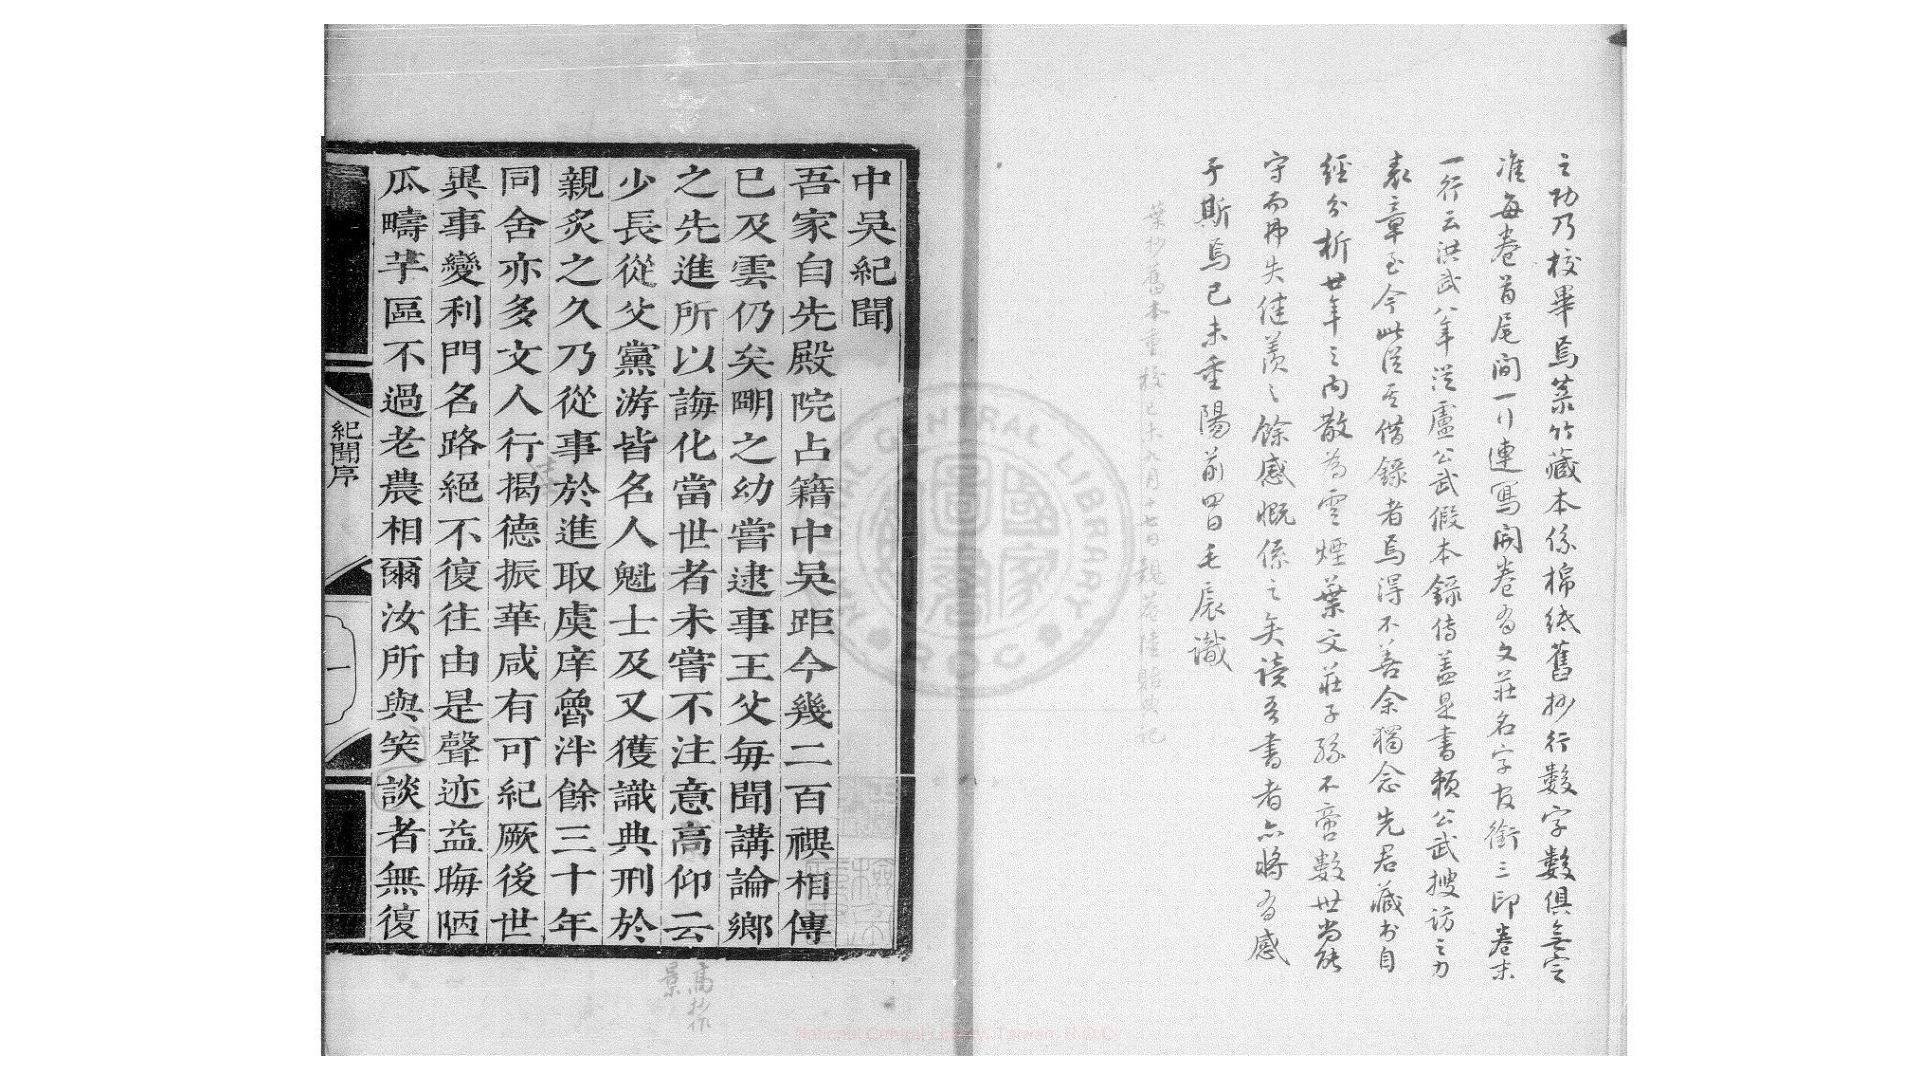 之功乃校畢焉菉竹藏本係棉紙舊抄行數字數俱無定
准每卷首尾間一行連寫開卷有文莊名字官銜三印卷末
一行云洪武八年從盧公武假本錄傳蓋是書賴公武搜訪之力
表章至今此從其借錄者焉得不善余獨念先君藏書自
經分析廿年之內散為雲煙葉文莊子孫不啻數世尚能
守而弗失健羨之餘感慨係之矣讀吾書者亦將有感
于斯焉己未重陽前四日毛扆識
葉抄舊本重校己未八月十七日 陸貽典記
中吳紀聞
吾家自先殿院占籍中吳距今幾二百禩相傳
已及雲仍矣明之幼嘗逮事王父每聞講論鄉
之先進所以誨化當世者未嘗不注意高仰云
少長從父黨游皆名人魁士及又獲識典刑於
親炙之久乃從事於進取虞庠魯泮餘三十年
同舍亦多文人行揭德振華咸有可紀厥後世
異事變利門名路絕不復往由是聲迹益晦陋
瓜疇芋區不過老農相爾汝所與笑談者無復
紀聞序
一
高抄作
景
National Central Library, Taiwan, R.O.C
NATIONAL CENTRAL LIBRARY
R.O.C
國家圖書